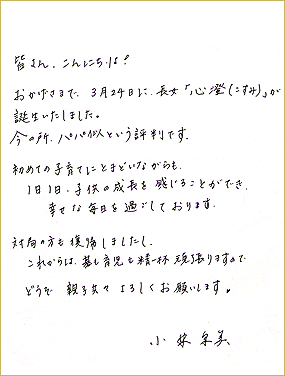 皆さん、こんにちは!
おかげさまで、3月24日に、長女「心澄(こすみ)」が
誕生いたしました。
今の所、パパ似という評判です。
初めての子育てにとまどいながらも、
1日1日、子供の成長を感じることができ、
幸せな毎日を過ごしております。
対局の方も復帰しましたし、
これからは、碁も育児も精一杯頑張りますので
どうぞ 親子共々よろしくお願いします。
小林泉美